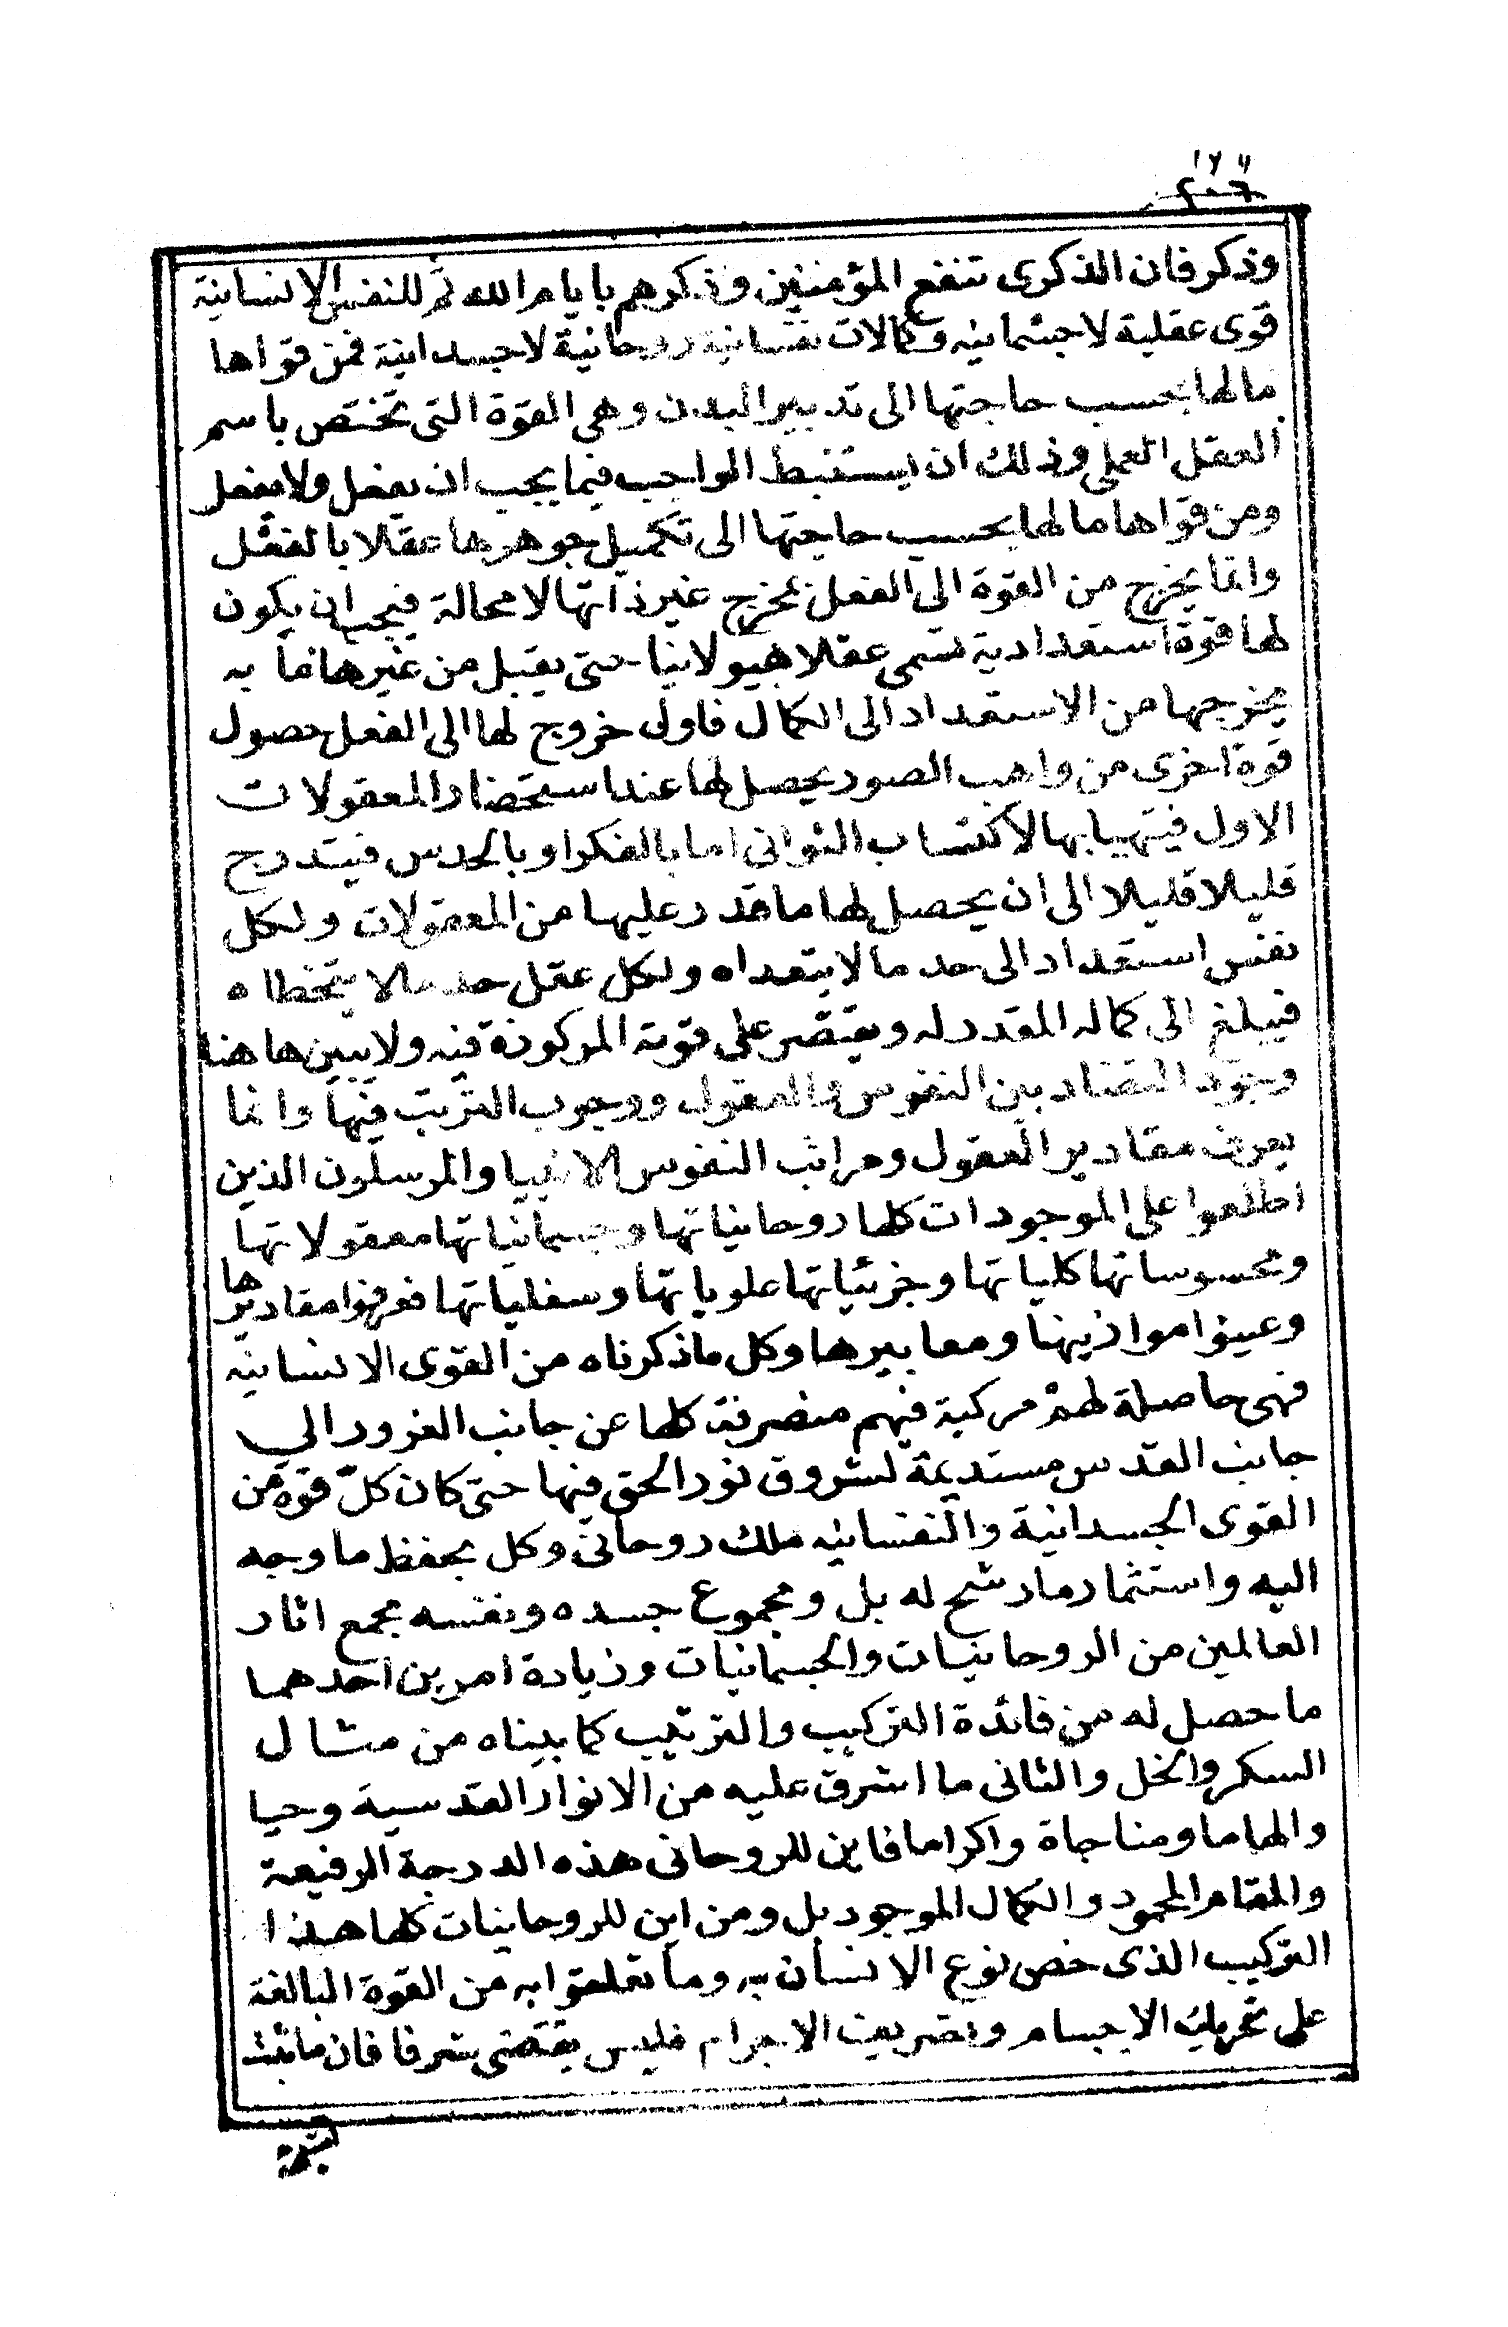 ١٧٧
٢٠٦
وذكر فان الذكرى تنفع المؤمنين وذكرهم بايام الله ثم للنفس الانسانية
قوى عقلية لا جسمانيه وكمالات نفسانية روحانية لا جسدانية فمن قواها
مالها بحسب حاجتها الى تدبير البدن وهي القوة التي تختص باسم
العقل العملي وذلك ان يستنبط الواجب فيما يجب ان يفعل ولا يفعل
ومن قواها مالها بحسب حاجتها الى تكميل جوهرها عقلا بالفعل
وانما يخرج من القوة الى الفعل بمخرج غير ذاتها لا محالة فيجب ان يكون
لها قوة استعدادية تسمى عقلا هيولانيا حتى يقبل من غيرها ما به
يخرجها من الاستعداد الى الكمال فاول خروج لها الى الفعل حصول
قوة اخرى من واهب الصور يحصل لها عند استحضار المعقولات
الاول فيتهيا بها لاكتساب الثواني اما بالفكر او بالحدس فيتدرج
قليلا قليلا الى ان يحصل لها ما قدر عليها من المعقولات ولكل
نفس استعداد الى حد ما لا يتعداه ولكل عقل حد ما لا يتخطاه
فيبلغ الى كماله المقدر له ويقتصر على قوته المركوزة فيه ولا يبين هاهنا
وجود التضاد بين النفوس والعقول ووجوب الترتب فيها وانما
يعرف مقادير العقول ومراتب النفوس الانبيا والمرسلون الذين
اطلعوا على الموجودات كلها روحانياتها وجسمانياتها معقولاتها
ومحسوساتها كلياتها وجزئياتها علوياتها وسفلياتها فعرفوا مقاديرها
وعينوا موازينها ومعاييرها وكل ما ذكرناه من القوى الانسانيه
فهي حاصلة لهم مركبة فيهم منصرفة كلها عن جانب الغرور الي
جانب القدس مستديمة لشروق نور الحق فيها حتى كان كلّ قوة من
القوى الجسدانية والنفسانيه ملك روحاني وكل بحفظ ما وجه
اليه واستثمار ما رشح له بل ومجموع جسده ونفسه مجمع اثار
العالمين من الروحانيات والجسمانيات وزيادة امرين احدهما
ما حصل له من فائدة التركيب والترتيب كما بيناه من مثال
السكر والخل والثاني ما اشرق عليه من الانوار القدسية وحيا
والهاما ومناجاة واكراما فاين للروحاني هذه الدرجة الرفيعة
والمقام المحمود والكمال الموجود بل ومن اين للروحانيات كلها هذا
التركيب الذي خص نوع الانسان به وما تعلقوا به من القوة البالغة
على تحريك الاجسام وتصريف الاجرام فليس يقتضي شرفا فان ما يثبت